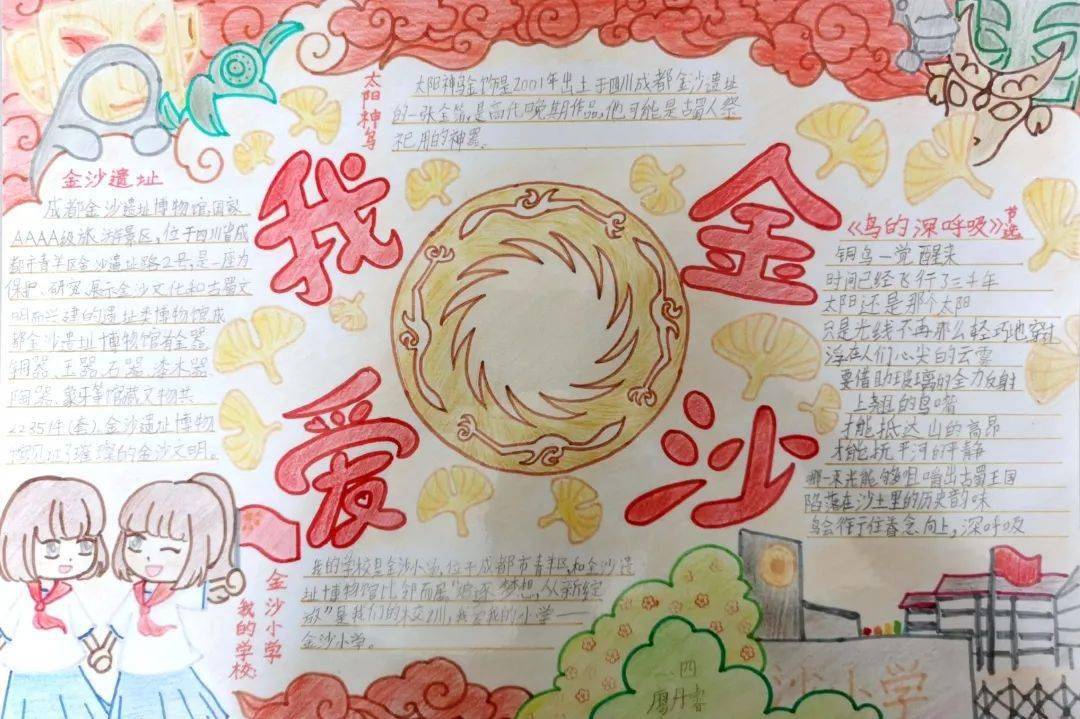 我爱金沙
太阳神鸟
太阳神鸟金饰是2001年出土于四川成都金沙遗址
的一张金箔,是商代晚期作品,他可能是古蜀人祭
祀用的神器。
金沙遗址
成都金沙遗址博物馆,国家
AAAA级旅游景区,位于四川省成
都市青羊区金沙遗址路2号,是一座为
保护、研究、展示金沙文化和古蜀文
明而兴建的遗址类博物馆成
都金沙遗址博物馆有金器
铜器、玉器、石器、漆木器
陶器、象牙等馆藏文物共
2235件(套),金沙遗址博物
馆见证了璀璨的金沙文明。
《鸟的深呼吸》节选
铜鸟一觉醒来
时间已经飞行了三千年
太阳还是那个太阳
只是光线不再那么轻巧地穿过
浮在人们心尖的云雾
要借助玻璃的全力反射
上翘的鸟嘴
才能抵达山的高昂
才能抚平河的平静
哪一束光能够咀嚼出古蜀王国
陷落在沙土里的历史韵味
鸟会衔住香念向上,深呼吸
金沙小学
我的学校:
我的学校是金沙小学,位于成都市青羊区,和金沙遗
址博物馆比邻而居"追逐梦想,从新绽
放"是我们的校训,我爱我的小学——
金沙小学。
二.四
廖丹睿
沙小学